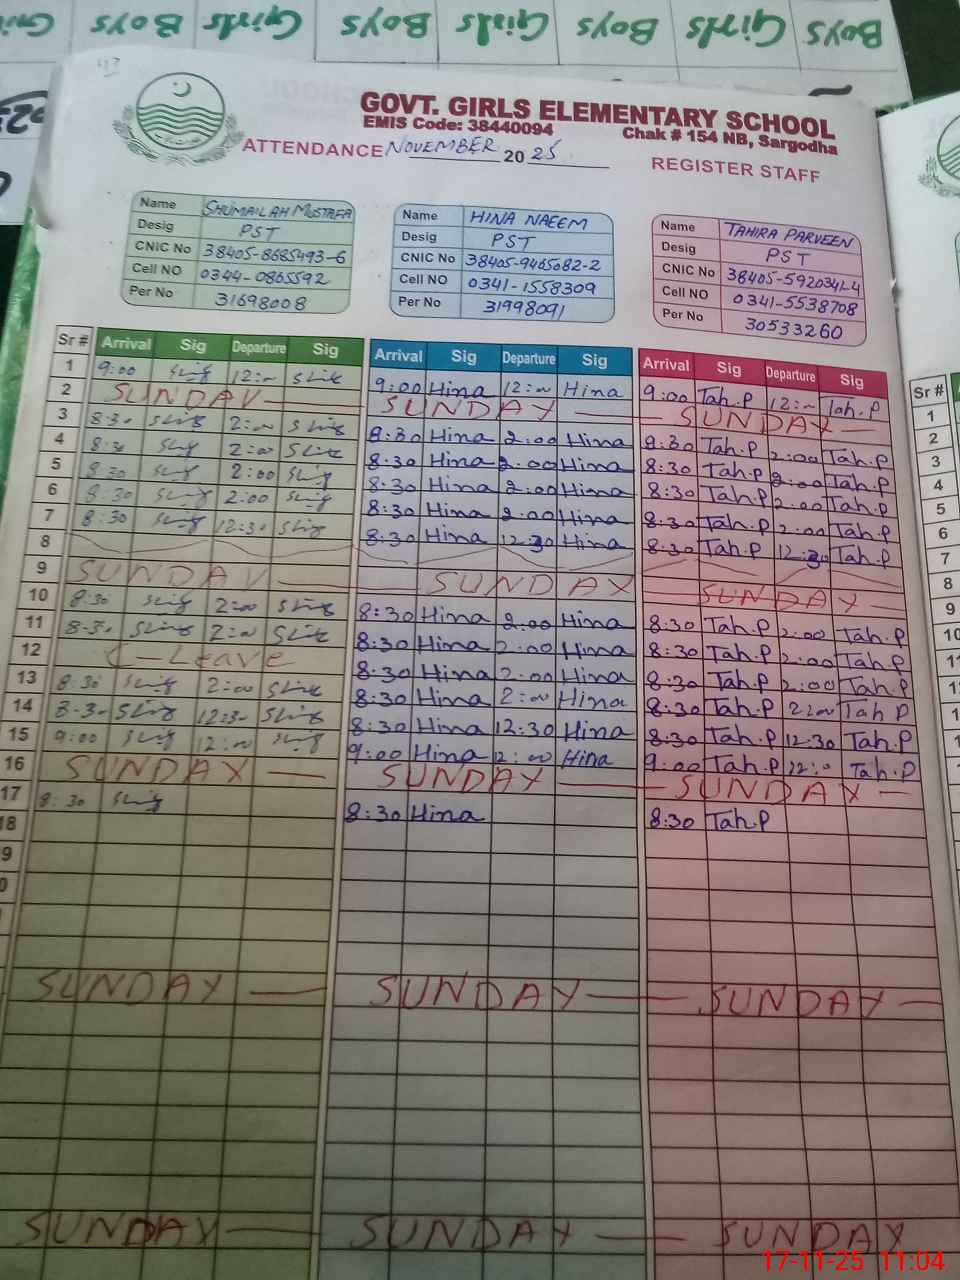 Boys Girls Boys Girls Boys Girls Boys
GOVT. GIRLS ELEMENTARY SCHOOL
EMIS Code: 38440094 Chak # 154 NB, Sargodha
ATTENDANCE NOVEMBER 2025 REGISTER STAFF
Name SHUMAILAH MUSTAFA
Desig PST
CNIC No 38405-8685493-6
Cell NO 0344-0865592
Per No 31698008
Name HINA NAEEM
Desig PST
CNIC No 38405-9465682-2
Cell NO 0341-1558309
Per No 31998091
Name TAHIRA PARVEEN
Desig PST
CNIC No 38405-5920341-4
Cell NO 0341-5538708
Per No 30533260
Sr # Arrival Sig Departure Sig Arrival Sig Departure Sig Arrival Sig Departure Sig Sr #
1 9:00 12:00 9:00 Hina 12:00 Hina 9:00 Tah.P 12:00 Tah.P 1
2 SUNDAY SUNDAY SUNDAY 2
3 8:30 2:00 8:30 Hina 2:00 Hina 8:30 Tah.P 2:00 Tah.P 3
4 8:30 2:00 8:30 Hina 2:00 Hina 8:30 Tah.P 2:00 Tah.P 4
5 8:30 2:00 8:30 Hina 2:00 Hina 8:30 Tah.P 2:00 Tah.P 5
6 8:30 2:00 8:30 Hina 2:00 Hina 8:30 Tah.P 2:00 Tah.P 6
7 8:30 12:30 8:30 Hina 12:30 Hina 8:30 Tah.P 12:30 Tah.P 7
8 8
9 SUNDAY SUNDAY SUNDAY 9
10 8:30 2:00 8:30 Hina 2:00 Hina 8:30 Tah.P 2:00 Tah.P 10
11 8:30 2:00 8:30 Hina 2:00 Hina 8:30 Tah.P 2:00 Tah.P
12 C-Leave 8:30 Hina 2:00 Hina 8:30 Tah.P 2:00 Tah.P
13 8:30 2:00 8:30 Hina 2:00 Hina 8:30 Tah.P 2:00 Tah P
14 8:30 12:30 8:30 Hina 12:30 Hina 8:30 Tah.P 12:30 Tah.P
15 9:00 12:00 9:00 Hina 12:00 Hina 9:00 Tah.P 12:0 Tah.P
16 SUNDAY SUNDAY SUNDAY
17 8:30 8:30 Hina 8:30 Tah.P
18
9
0
SUNDAY SUNDAY SUNDAY
SUNDAY SUNDAY SUNDAY
17-11-25 11:04